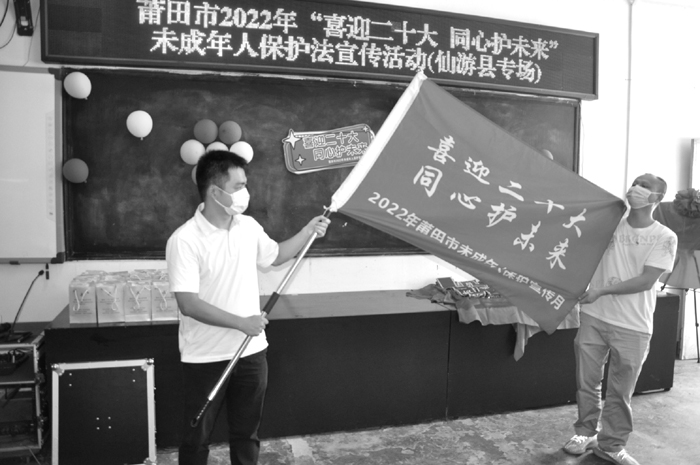 莆田市2022年“喜迎二十大 同心护未来”
未成年人保护法宣传活动(仙游县专场)
喜迎二十大
同心护未来
喜迎二十大
同心护未来
2022年莆田市未成年人保护宣传月